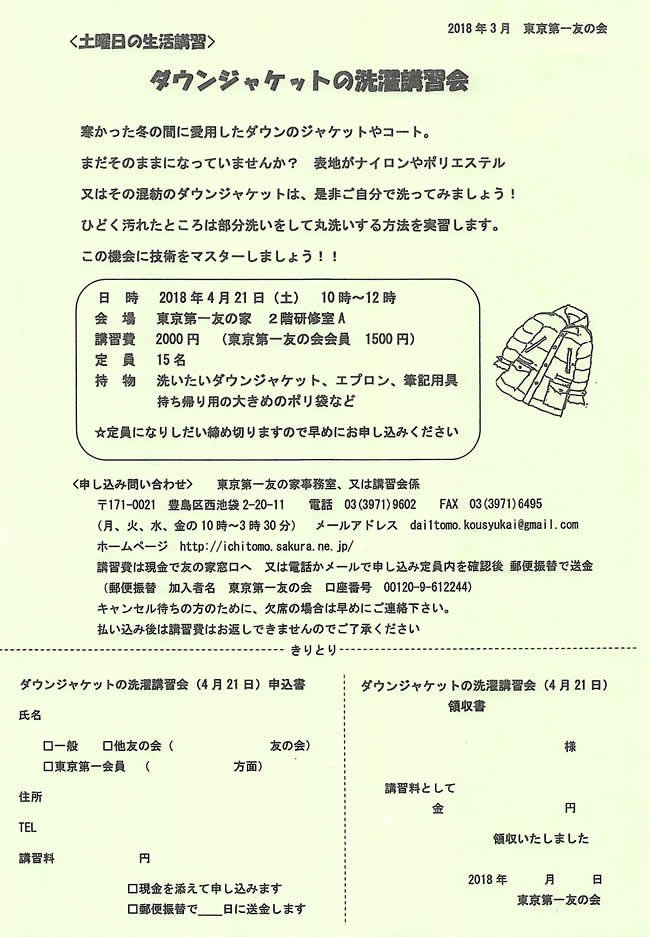 2018年3月 東京第一友の会
<土曜日の生活講習>
ダウンジャケットの洗濯講習会
寒かった冬の間に愛用したダウンのジャケットやコート。
まだそのままになっていませんか？ 表地がナイロンやポリエステル
又はその混紡のダウンジャケットは、是非ご自分で洗ってみましょう！
ひどく汚れたところは部分洗いをして丸洗いする方法を実習します。
この機会に技術をマスターしましょう！！
日 時 2018年4月21日（土） 10時～12時
会 場 東京第一友の家 2階研修室A
講習費 2000円 （東京第一友の会会員 1500円）
定 員 15名
持 物 洗いたいダウンジャケット、エプロン、筆記用具
持ち帰り用の大きめのポリ袋など
☆定員になりしだい締め切りますので早めにお申し込みください
<申し込み問い合わせ> 東京第一友の家事務室、又は講習会係
〒171-0021 豊島区西池袋2-20-11 電話 03(3971)9602 FAX 03(3971)6495
（月、火、水、金の10時～3時30分） メールアドレス dai1tomo.kousyukai@gmail.com
ホームページ http://ichitomo.sakura.ne.jp/
講習費は現金で友の家窓口へ 又は電話かメールで申し込み定員内を確認後 郵便振替で送金
（郵便振替 加入者名 東京第一友の会 口座番号 00120-9-612244）
キャンセル待ちの方のために、欠席の場合は早めにご連絡下さい。
払い込み後は講習費はお返しできませんのでご了承ください
きりとり
ダウンジャケットの洗濯講習会（4月21日）申込書
氏名
□一般 □他友の会（ 友の会）
□東京第一会員 （ 方面）
住所
TEL
講習料 円
□現金を添えて申し込みます
□郵便振替で___日に送金します
ダウンジャケットの洗濯講習会（4月21日）
領収書
様
講習料として
金 円
領収いたしました
2018年 月 日
東京第一友の会